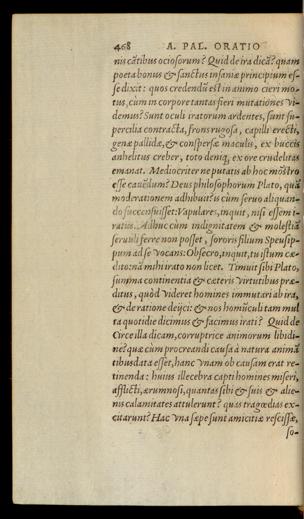 468 A. PAL. ORATIO
nis cãtibus ociosorum? Quid de ira dicã? quam
poeta bonus & sanctus insaniæ principium es-
se dixit: quos credendũ est in animo cieri mo-
tus, cùm in corpore tantas fieri mutationes vi-
demus? Sunt oculi iratorum ardentes, sunt su-
percilia contracta, frons rugosa, capilli erecti,
genæ pallidæ, & conspersæ maculis, ex buccis
anhelitus creber, toto deniq, ex ore crudelitas
emanat. Mediocriter ne putatis ab hoc mõstro
esse cauẽdum? Deus philosophorum Plato, quã
moderationem adhibuit? is cùm seruo aliquan-
do succensuisset: Vapulares, inquit, nisi essem i-
ratus. Adhuc cùm indignitatem & molestiã
seruuli ferre non posset, sororis filium Speusip-
pum ad se vocans: Obsecro, inquit, tu istum cæ-
dito: nã mihi irato non licet. Timuit sibi Plato,
summa continentia & cæteris virtutibus præ-
ditus, quòd videret homines immutari ab ira,
& de ratione deijci: & nos homũculi tam mul
ta quotidie dicimus & facimus irati? Quid de
Circe illa dicam, corruptrice animorum libidi-
ne? quæ cùm procreandi causa à natura animã
tibus data esset, hanc vnam ob causam erat re-
tinenda: huius illecebra capti homines miseri,
afflicti, ærumnosi, quantas sibi & suis & alie-
nis calamitates attulerunt? quas tragœdias ex-
citarunt? Hac vna sæpe sunt amicitiæ rescissæ,
so-